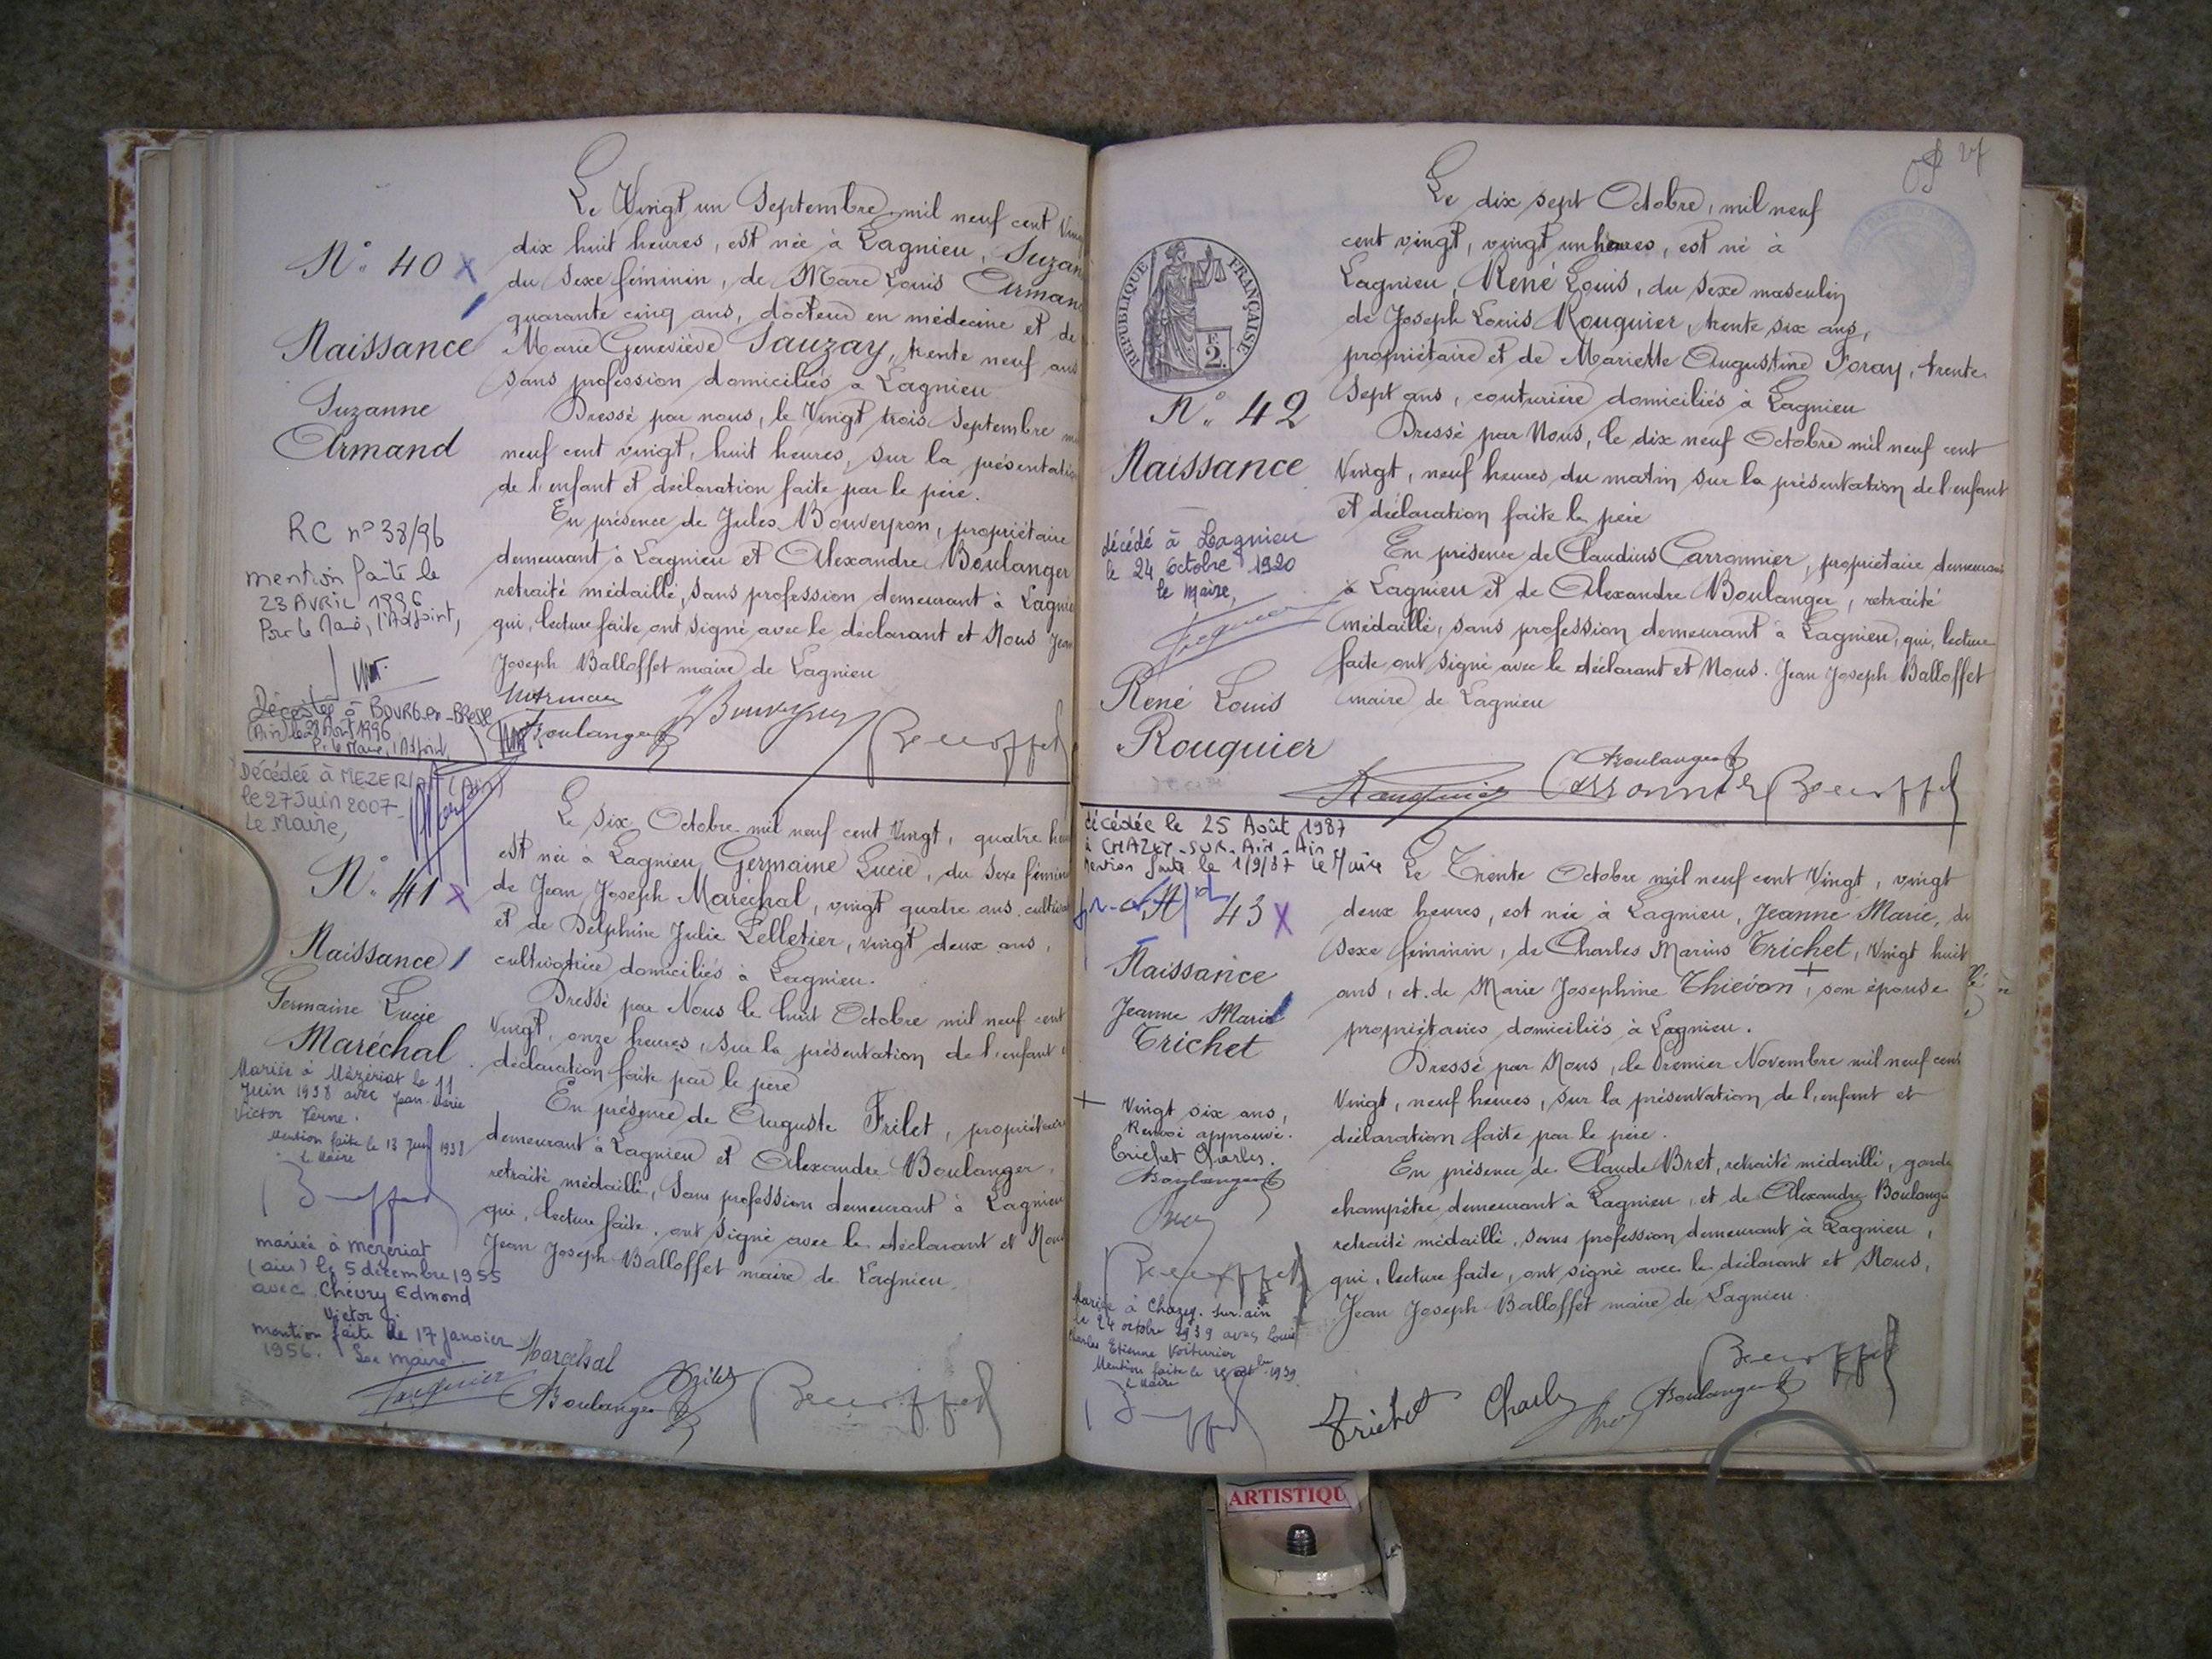 N° 40
Naissance
Suzanne
Armand
RC n° 38/96
mention faite le
23 AVRIL 1996
Pour le Maire, l'Adjoint,
Décédée à BOURG-en-BRESSE
(Ain) le 1996
P. le Maire, l'Adjoint
Le Vingt un Septembre, mil neuf cent
dix huit heures, est née à Lagnieu, Suzan
du sexe féminin, de Marc Louis Arman
quarante cinq ans, docteur en médecine et de
Marie Geneviève Sauzay, trente neuf ans
sans profession domiciliés à Lagnieu
Dressé par nous, le Vingt trois Septembre
neuf cent vingt, huit heures, sur la présentation
de l'enfant et déclaration faite par le père.
En présence de Jules Bouveyron, propriétaire
demeurant à Lagnieu et Alexandre Boulanger
retraité médaillé, sans profession demeurant à Lagnieu
qui, lecture faite ont signé avec le déclarant et Nous Jean
Joseph Balloffet maire de Lagnieu
Boulanger
Décédée à MEZERIAT (Ain)
le 27 Juin 2007
Le Maire,
N° 41
Naissance
Germaine Lucie
Maréchal
Mariée à Mézériat le 11
Juin 1938 avec Jean-Marie
Victor Verne.
Mention faite le 13 Juin 1938
le Maire
mariée à Mezeriat
(ain) le 5 décembre 1955
avec Chevry Edmond
Victor
mention faite le 17 janvier
1956. Le Maire
Le six Octobre mil neuf cent Vingt, quatre heu
est née à Lagnieu Germaine Lucie, du sexe fémin
de Jean Joseph Maréchal, vingt quatre ans, cultiva
et de Delphine Julie Pelletier, vingt deux ans,
cultivatrice domiciliés à Lagnieu.
Dressé par Nous le huit Octobre mil neuf cent
Vingt, onze heures, sur la présentation de l'enfant
déclaration faite par le père
En présence de Auguste Frilet, propriétaire
demeurant à Lagnieu et Alexandre Boulanger,
retraité médaillé, sans profession demeurant à Lagnieu
qui, lecture faite, ont signé avec le déclarant et Nous
Jean Joseph Balloffet maire de Lagnieu.
Maréchal
Frilet
Boulanger
27
RÉPUBLIQUE FRANÇAISE
2F.
N° 42
Naissance
décédé à Lagnieu
le 24 Octobre 1920
le Maire,
René Louis
Rouquier
Le dix sept Octobre, mil neuf
cent vingt, vingt un heures, est né à
Lagnieu, René Louis, du sexe masculin
de Joseph Louis Rouquier, trente six ans,
propriétaire et de Mariette Augustine Foray, trente
sept ans, couturière domiciliés à Lagnieu
Dressé par Nous, le dix neuf Octobre mil neuf cent
Vingt, neuf heures du matin sur la présentation de l'enfant
et déclaration faite le père
En présence de Claudius Carronnier, propriétaire demeurant
à Lagnieu et de Alexandre Boulanger, retraité
médaillé, sans profession demeurant à Lagnieu, qui, lecture
faite ont signé avec le déclarant et Nous. Jean Joseph Balloffet
maire de Lagnieu
Boulanger
Rouquier Carronnier
décédée le 25 Août 1987
à CHAZEY-SUR-AIN Ain
Mention faite le 1/9/87 Le Maire
N° 43
Naissance
Jeanne Marie
Trichet
+ Vingt six ans,
Renvoi approuvé.
Trichet Charles.
Boulanger
Mariée à Chazey-sur-ain
le 24 octobre 1939 avec Louis
Charles Etienne Voiturier
Mention faite le 1939
le Maire
Le Trente Octobre mil neuf cent Vingt, vingt
deux heures, est née à Lagnieu, Jeanne Marie, du
sexe féminin, de Charles Marius Trichet, Vingt huit
ans, et de Marie Josephine Thiévon +, son épouse
propriétaires domiciliés à Lagnieu.
Dressé par Nous, le Premier Novembre mil neuf cent
Vingt, neuf heures, sur la présentation de l'enfant et
déclaration faite par le père.
En présence de Claude Bret, retraité médaillé, garde
champêtre demeurant à Lagnieu, et de Alexandre Boulanger
retraité médaillé, sans profession demeurant à Lagnieu,
qui, lecture faite, ont signé avec le déclarant et Nous,
Jean Joseph Balloffet maire de Lagnieu.
Trichet Charles Boulanger
ARTISTIQU